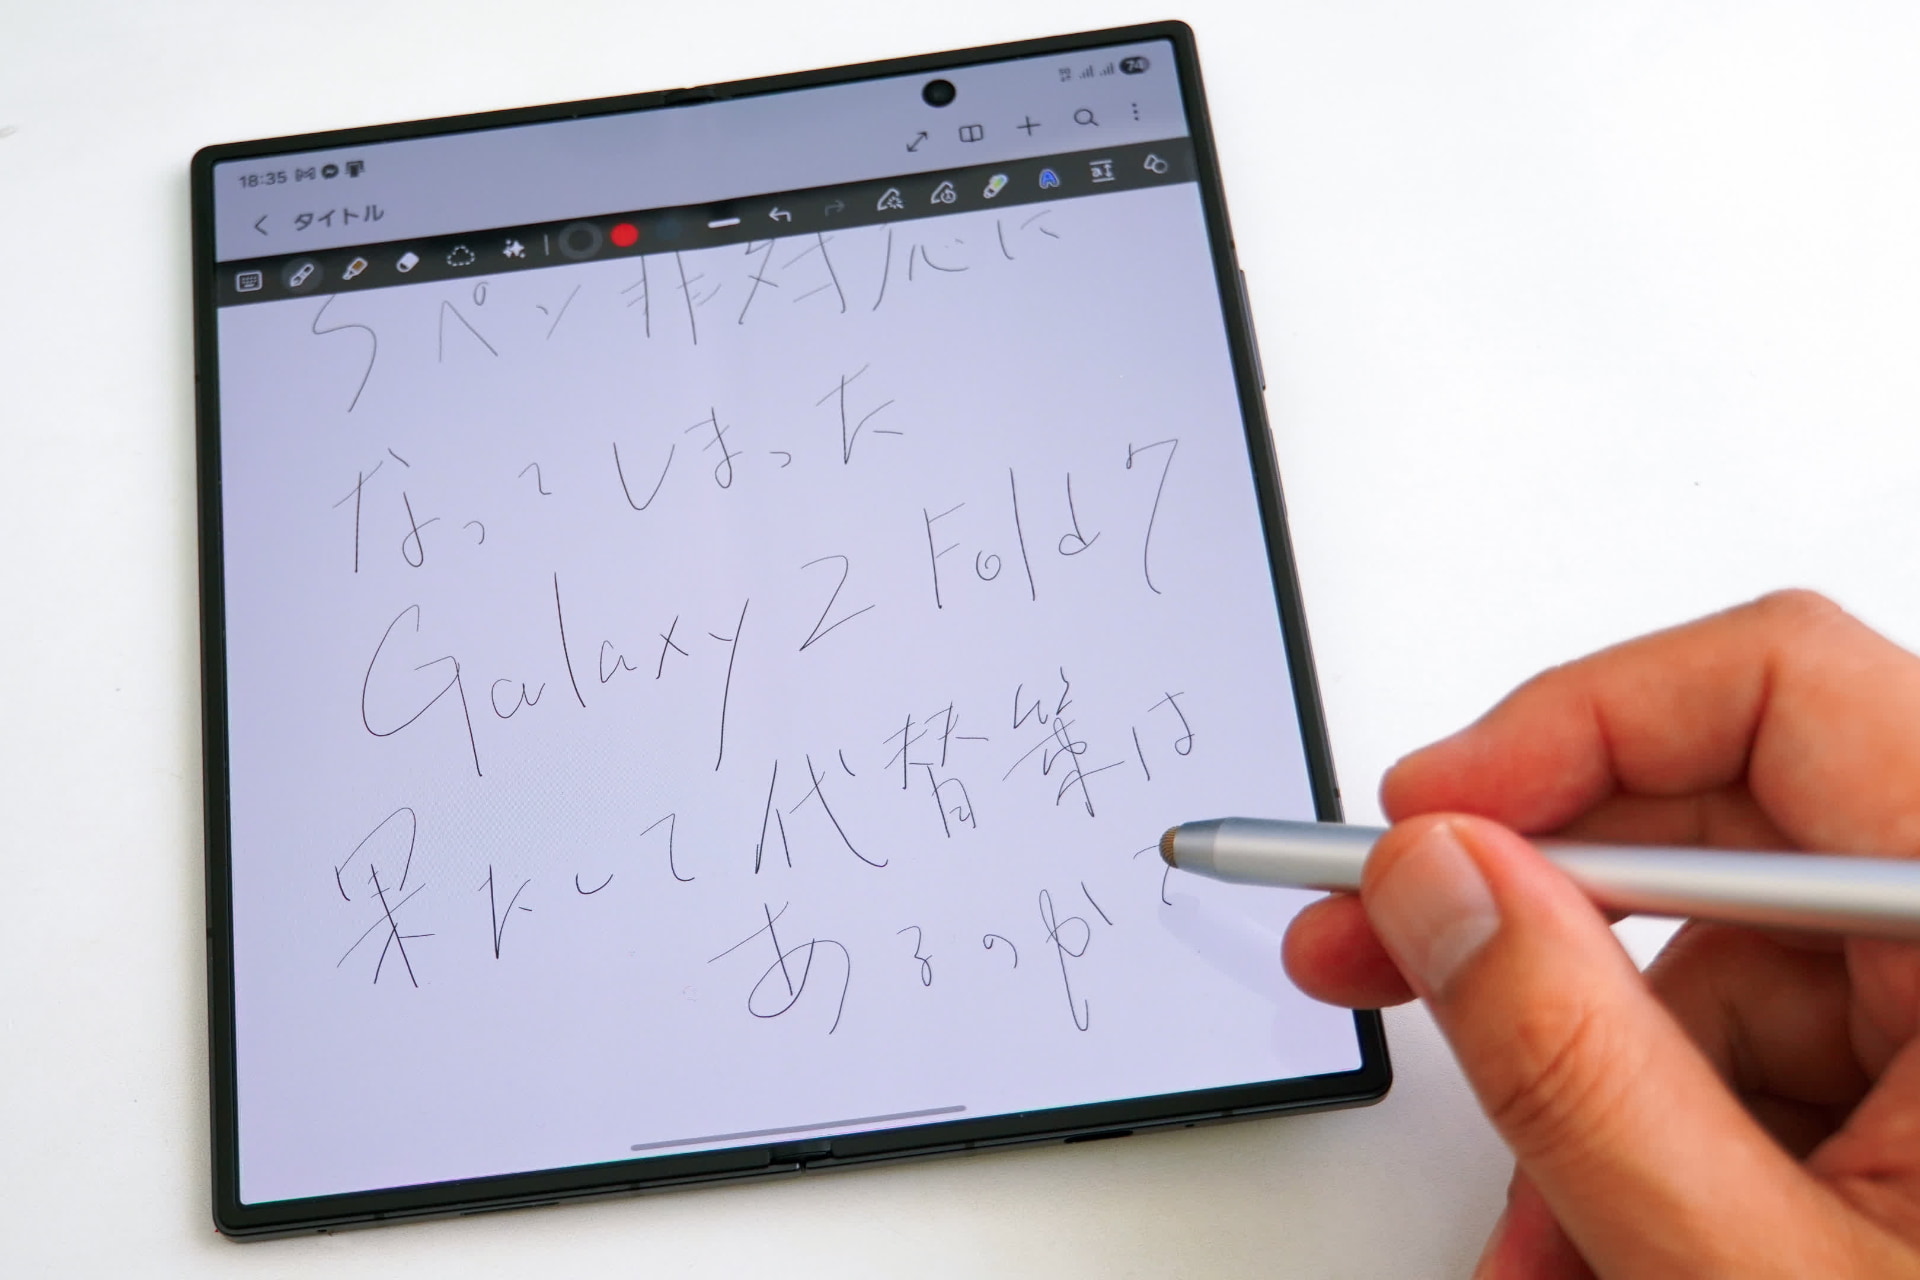 18:35
74
タイトル
Sペン非対応に
なってしまった
Galaxy Z Fold7
果たして代替策は
あるのか?